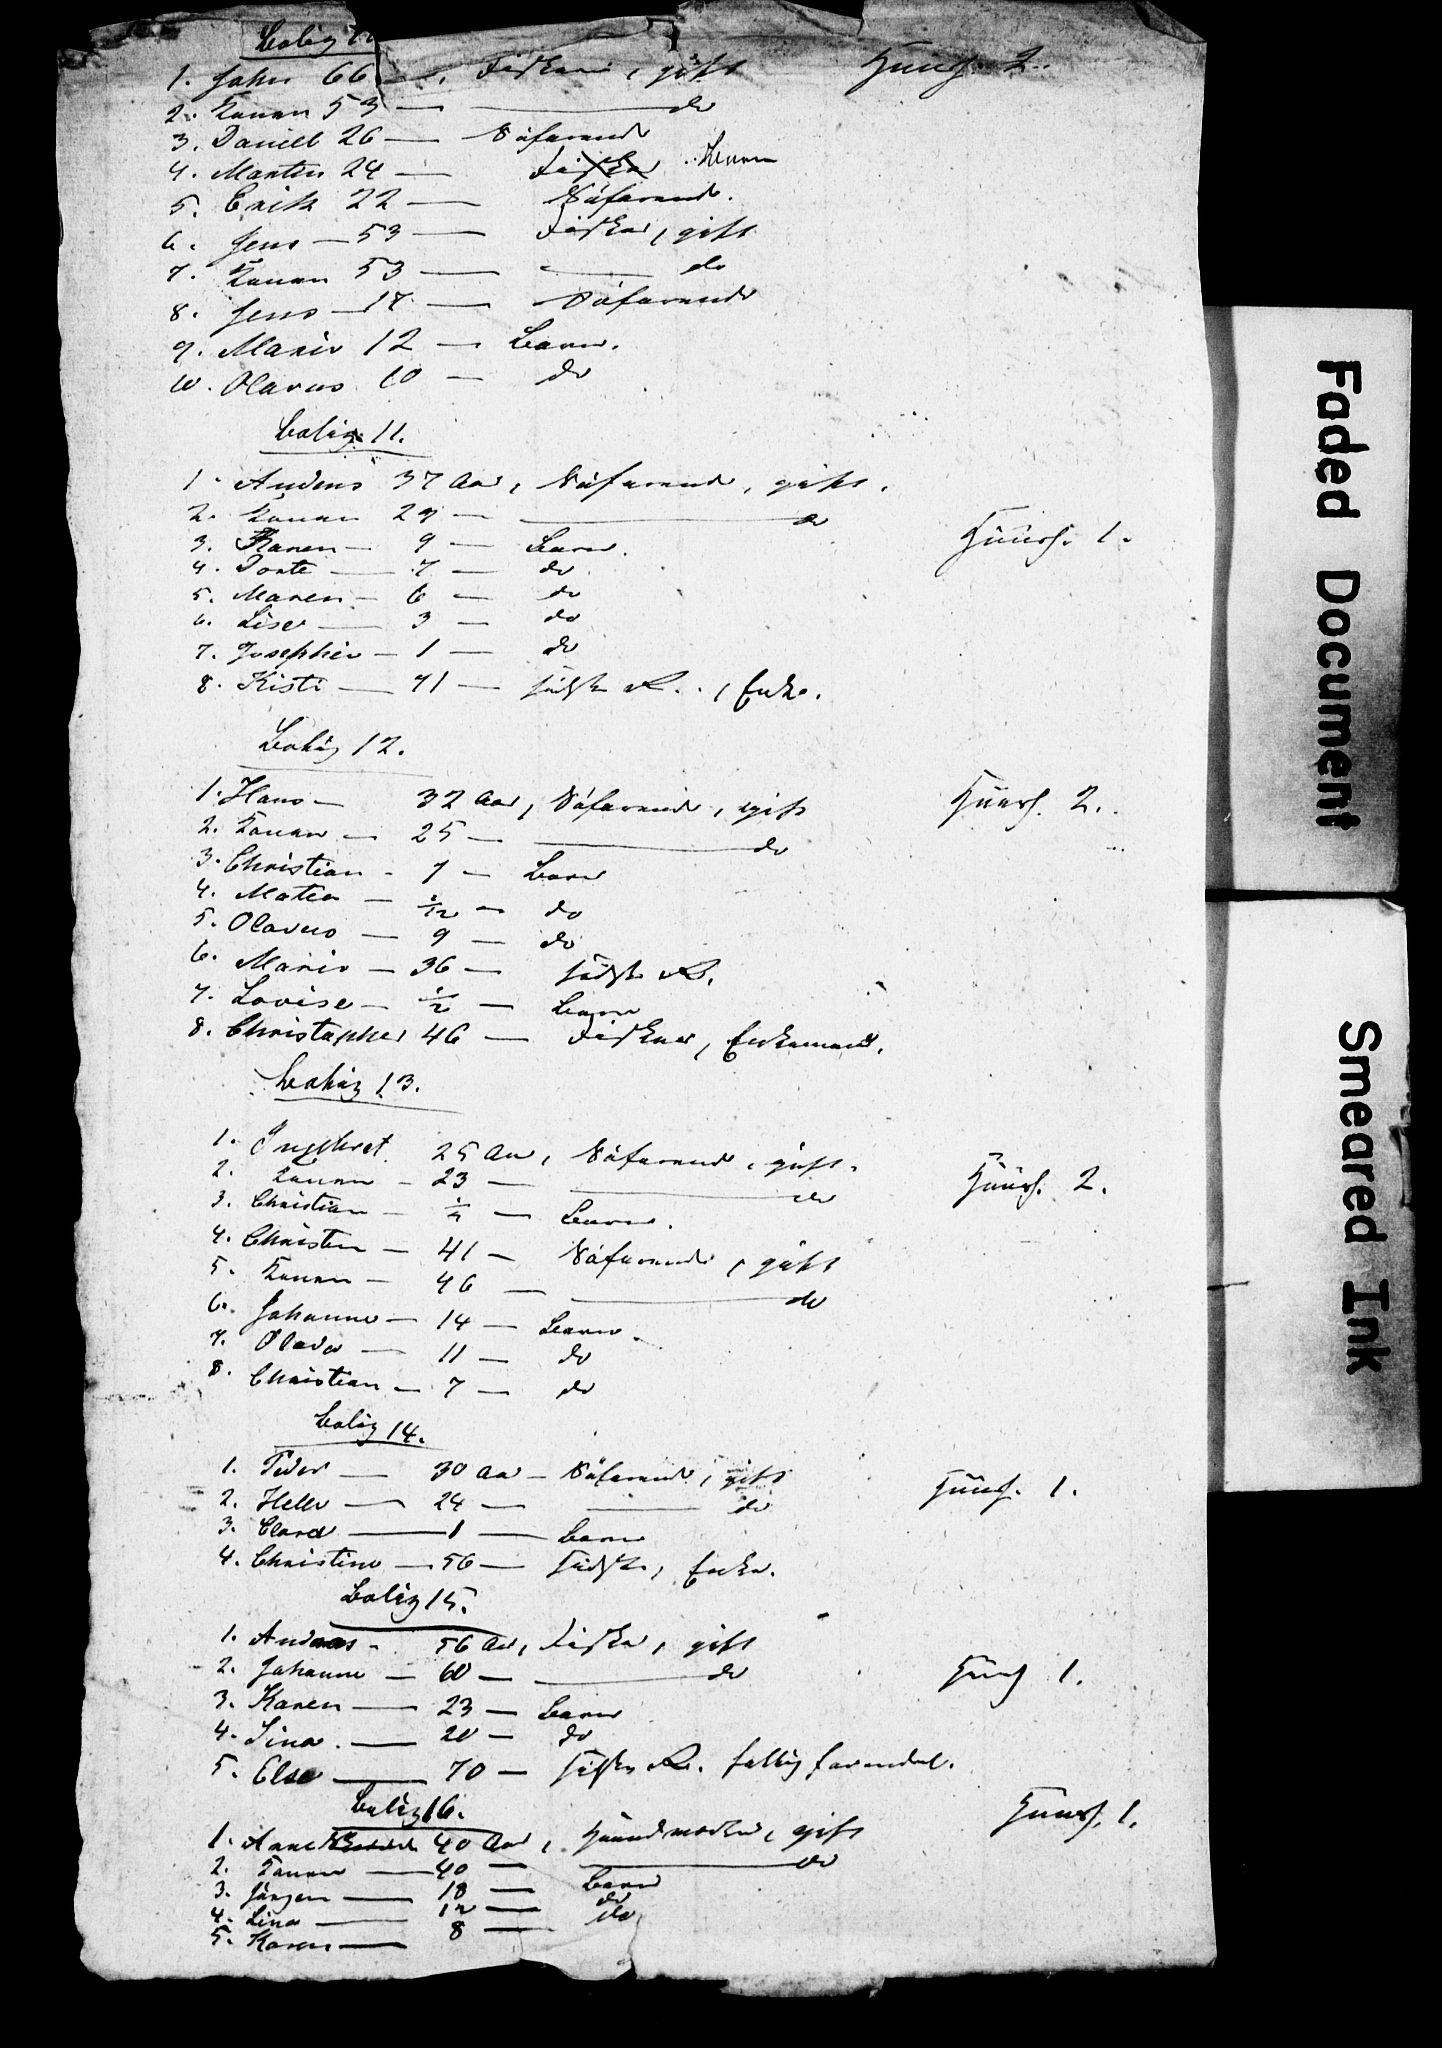 Bolig 10
1. John 66 — , Fisker , gift Huusf. 2.
2. Konen 53 — do
3. Daniel 26 — Søfarende
4. Martin 24 — Fisker
5. Erik 22 — Søfarende.
6. Jens — 53 — Fisker, gift
7. Konen 53 — do
8. Jens — 17 — Søfarende
9. Marie 12 — Barn.
10. Olavus 10 — do
Bolig 11.
1. Anders 37 Aar, Søfarende, gift.
2. Konen 29 — do
Huusf. 1.
3. Karen — 9 — Barn.
4. Dorte — 7 — do
5. Maren — 6 — do
6. Lise — 3 — do
7. Josephie — 1 — do
8. Kisti — 71 — , Enke.
Bolig 12.
1. Hans — 32 Aar, Søfarende, gift Huusf. 2.
2. Konen — 25 — do
3. Christian — 7 — Barn
4. Matea — do
5. Olavus — 9 — do
6. Marie — 36 —
7. Lovise — 1/2 — Barn
8. Christopher 46 — Fisker, Enkemand.
Bolig 13.
1. Ingebret 25 Aar, Søfarende, gift.
2. Konen — 23 — do
Huusf. 2.
3. Christian — — Barn.
4. Christen — 41 — Søfarende, gift
5. Konen — 46 — do
6. Johanne — 14 — Barn.
7. Olava — 11 — do
8. Christian — 7 — do
Bolig 14.
1. Peder — 30 Aar — Søfarende, gift
Huusf. 1.
2. Helle — 24 — do
3. Clara — 1 — Barn
4. Christine — 56 — , Enke.
Bolig 15.
1. Andreas — 56 Aar, Fisker, gift
2. Johanne — 60 — do
Huusf 1.
3. Karen — 23 — Barn
4. Sina. — 20 — do
5. Else — 70 —
Bolig 16.
Huusf. 1.
1. Arne 40 Aar, Huusmand, gift
2. Konen — 40 — do
3. Jørgen — 18 — Barn
4. Lina — 12 — do
5. Karen — 8 — do
Faded Document
Smeared Ink